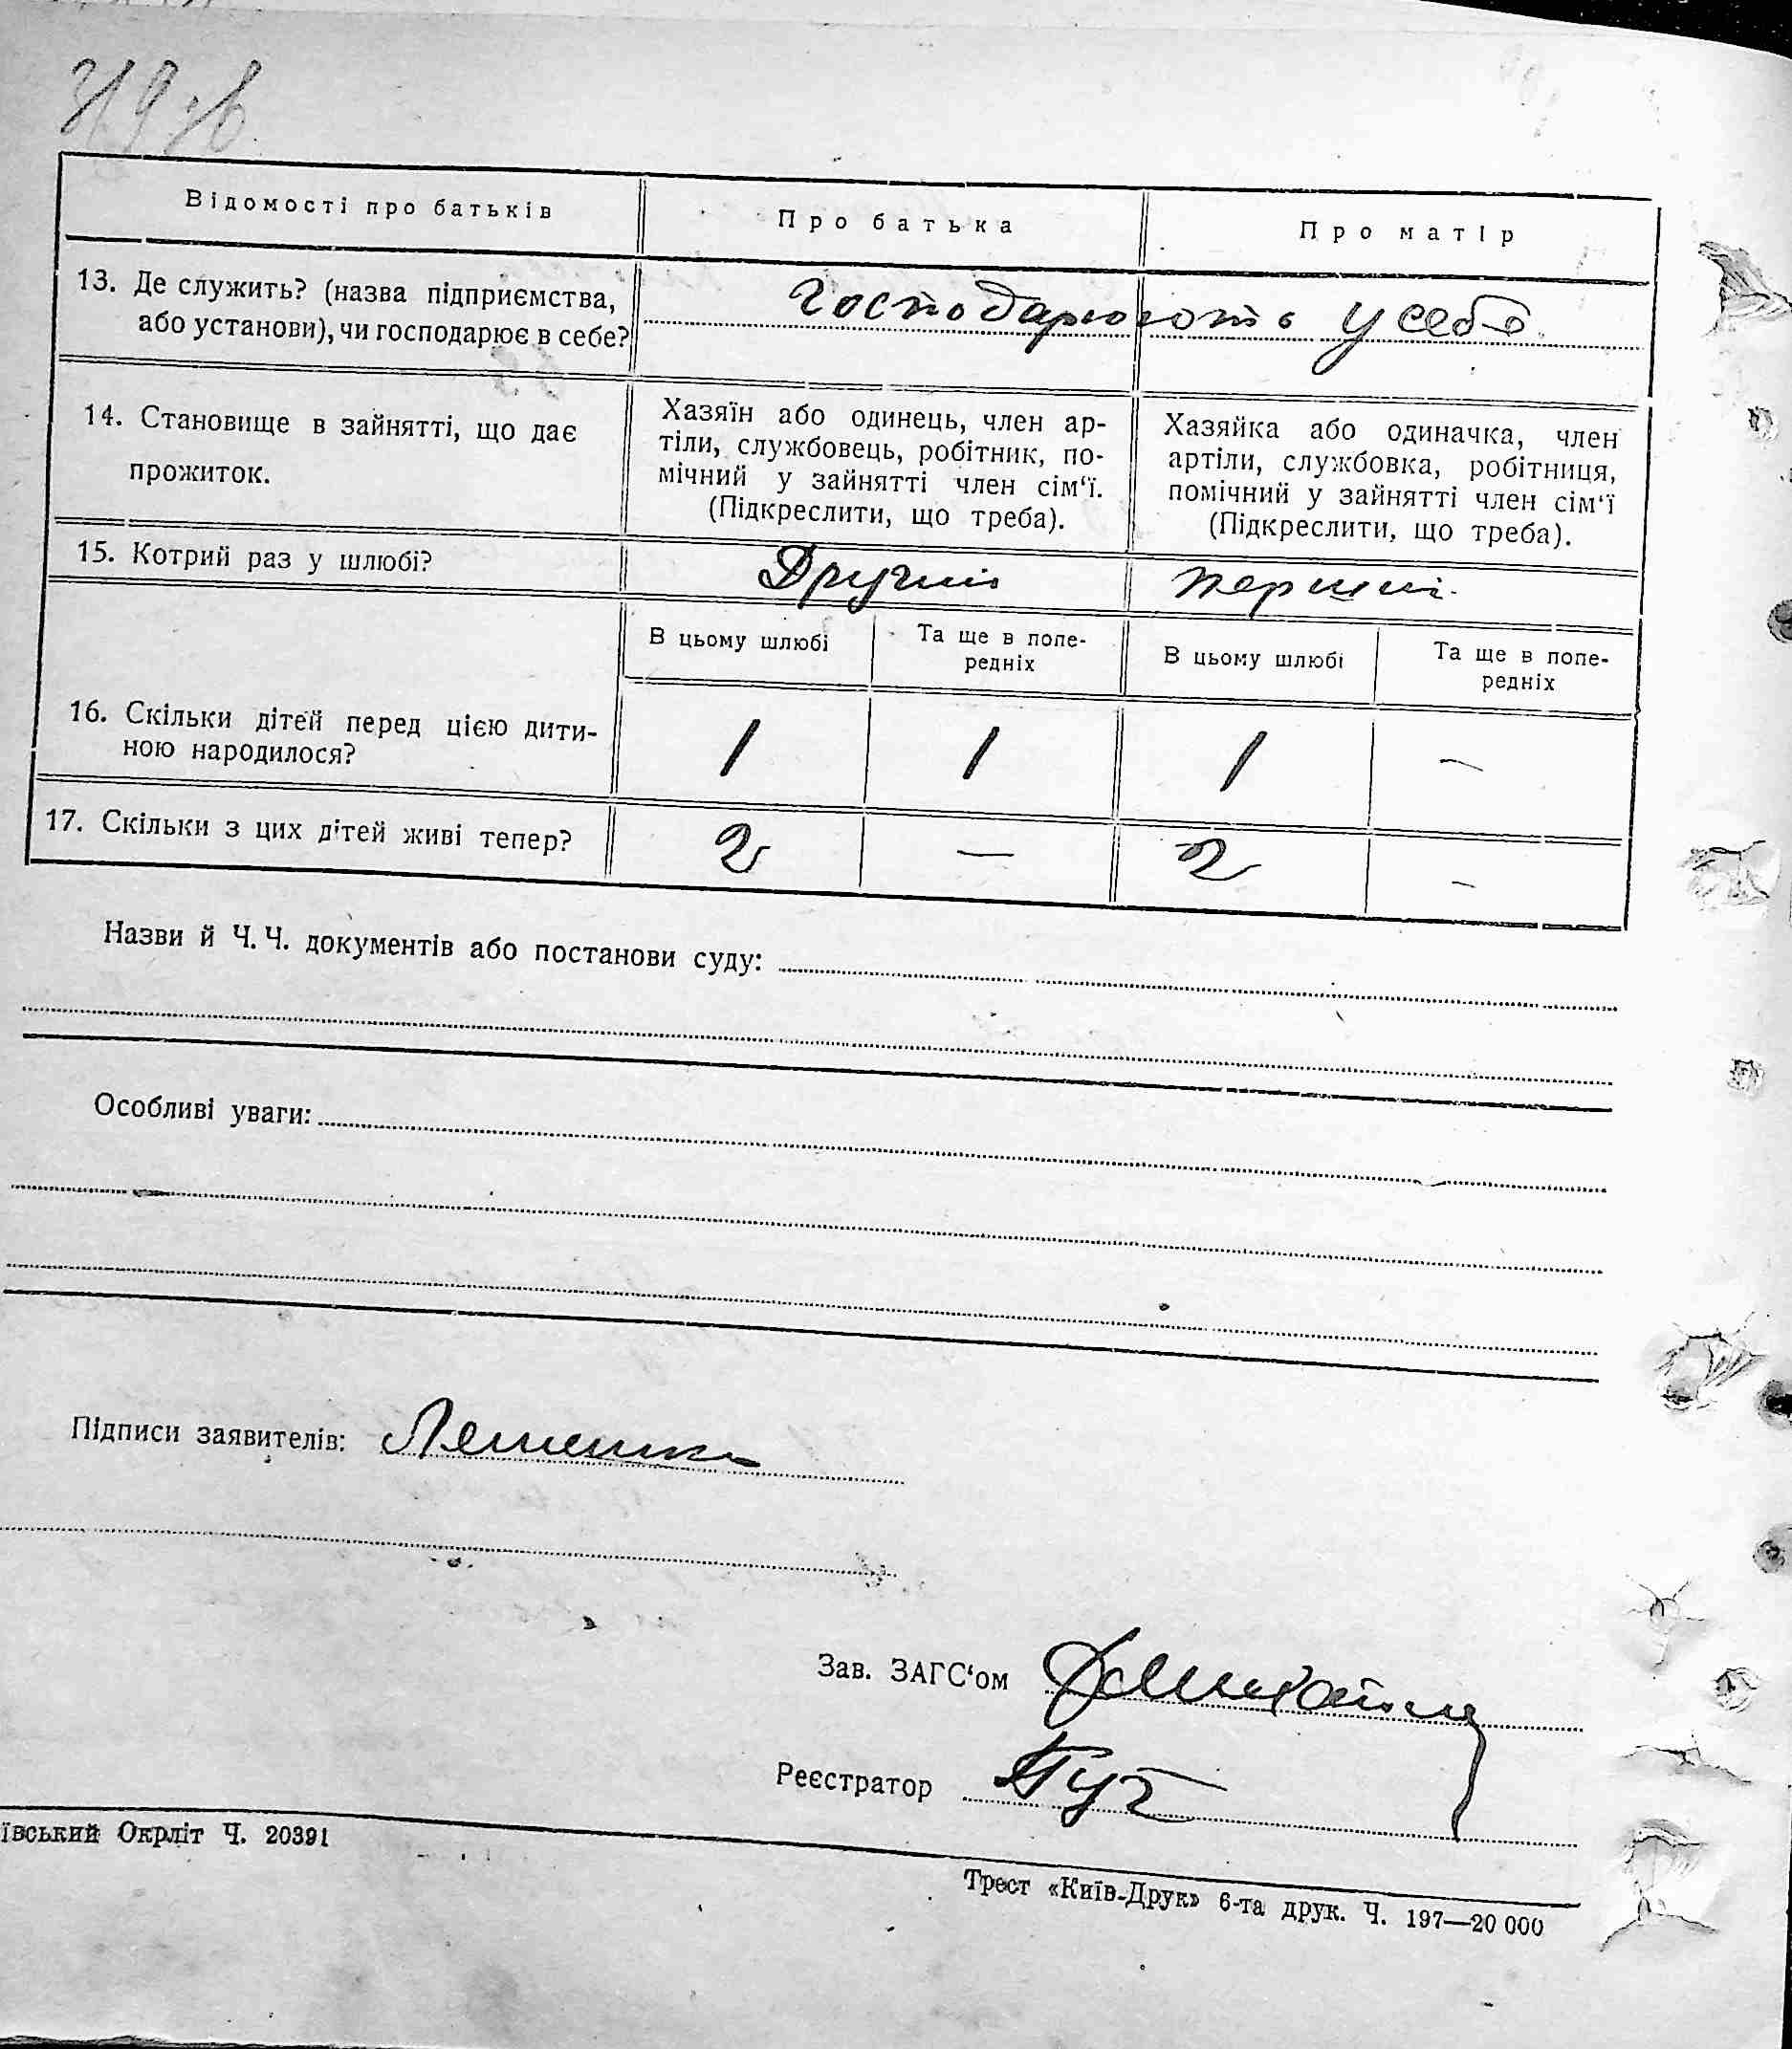 319 зв.
Відомості про батьків
Про батька
Про матір
13. Де служить? (назва підприємства,
або установи), чи господарює в себе?
Господарюють у себе
14. Становище в зайнятті, що дає
прожиток.
Хазяїн або одинець, член ар-
тіли, службовець, робітник, по-
мічний у зайнятті член сім‘ї.
(Підкреслити, що треба).
Хазяйка або одиначка, член
артіли, службовка, робітниця,
помічний у зайнятті член сім‘ї
(Підкреслити, що треба).
15. Котрий раз у шлюбі?
Другий
перший
В цьому шлюбі
Та ще в попе-
редніх
В цьому шлюбі
Та ще в попе-
редніх
16. Скільки дітей перед цією дити-
ною народилося?
1
1
1
—
17. Скільки з цих дітей живі тепер?
2
—
2
—
Назви й Ч. Ч. документів або постанови суду:
Особливі уваги:
Підписи заявителів:
Зав. ЗАГС‘ом
Реєстратор
ївський Окрліт Ч. 20391
Трест «Київ-Друк» 6-та друк. Ч. 197—20 000